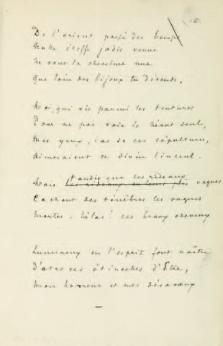 De l'orient passé des temps
Nulle étoffe jadis venue
Ne vaut la chevelure nue
Que loin des bijoux tu détends.
Moi, qui vis parmi les tentures
Pour ne pas voir le Néant seul,
Mes yeux, las de ces sépultures,
Aimeraient ce divin linceul.
tandis que les rideaux
Mais vagues
Cachent des ténèbres les vagues
Mortes, hélas! ces beaux cheveux
Lumineux en l'esprit font naître
D'atroces étincelles d'Être,
Mon horreur et mes désaveux